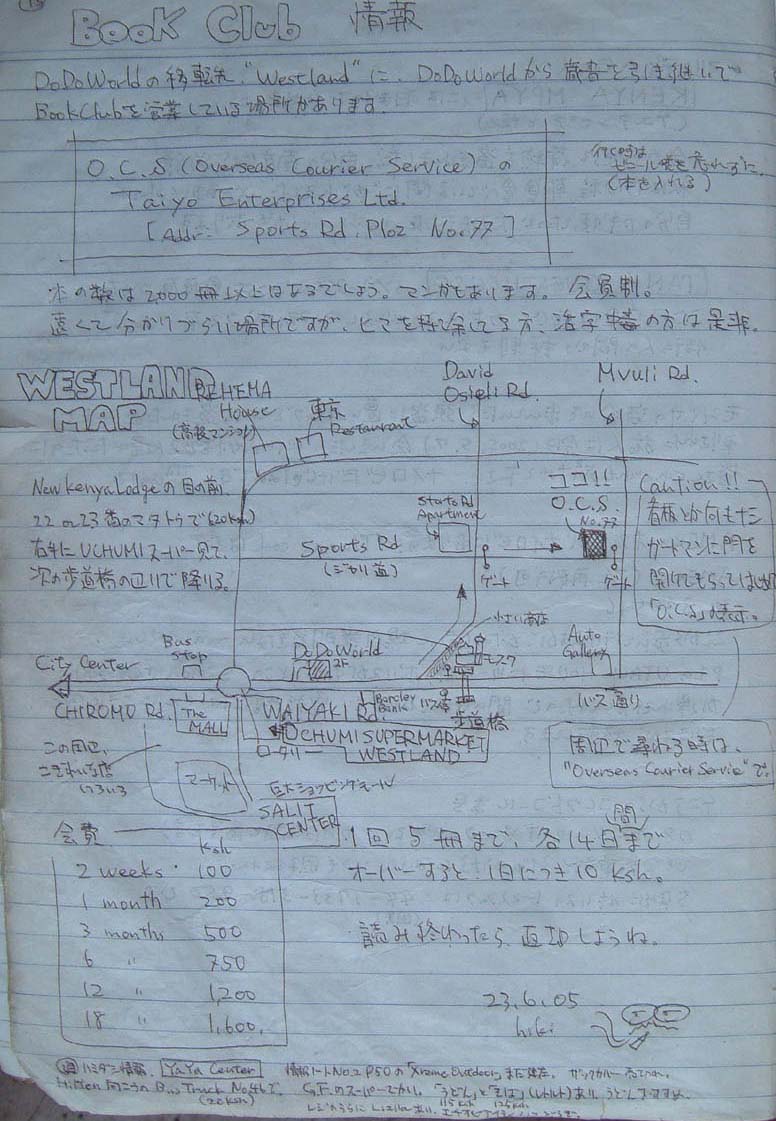 Book Club 情報
DoDoWorldの移転先 "Westland"に、DoDoWorldから蔵書を引き継いで
BookClubを営業している場所があります。
O.C.S (Overseas Courier Service) の
Taiyo Enterprises Ltd.
[Addr- Sports Rd. Ploz No.77]
行く時は
ビール袋を忘れずに。
(本を入れる)
本の数は2000冊以上はあるでしょう。マンガもあります。会員制。
遠くて分かりづらい場所ですが、ヒマを持て余してる方、活字中毒の方は是非。
WESTLAND MAP
RHEMA House
(高級マンション)
東京
Restaurant
David
Osieli Rd.
Mvuli Rd.
New Kenya Lodgeの目の前、
22 or 23番のマタトゥで(20ksh)
右手にUCHUMIスーパー見て、
次の歩道橋の辺りで降りる。
Sports Rd
(ジャリ道)
Starts Rd
Apartment
ココ!!
O.C.S.
No.77
ゲート
ゲート
Caution!!
看板とか何もナシ
ガードマンに門を
開けてもらってはじめて
「O.C.S」の表示。
City Center
Bus
Stop
DoDoWorld
2F
小さい商店
モスク
Auto
Gallery
CHIROMO Rd.
The
MALL
WAIYAKI Rd
Barcley
Bank
バス停
歩道橋
バス通り
UCHUMI SUPERMARKET
WESTLAND
ロータリー
この周辺、
こぎれいな店
いろいろ
マーケット
巨大ショッピングモール
SALIT
CENTER
周辺で尋ねる時は、
"Overseas Courier Servie"で。
会費
Ksh
2 weeks 100
1 month 200
3 months 500
6 〃 750
12 〃 1,200
18 〃 1,600.
1回5冊まで、各14日間まで
オーバーすると1日につき10 Ksh。
読み終わったら返却しようね。
23.6.05
hiki
ハミダシ情報。 YaYa Center 情報ノートNo.2 P50の「Xtreme Outdoor」まだ健在。
Hilton 向こうの Truck No.46で
(20ksh)
G.F.のスーパーでかい。「うどん」と「そば」(レトルト)あり。うどんオススメ。
115Ksh 125Ksh